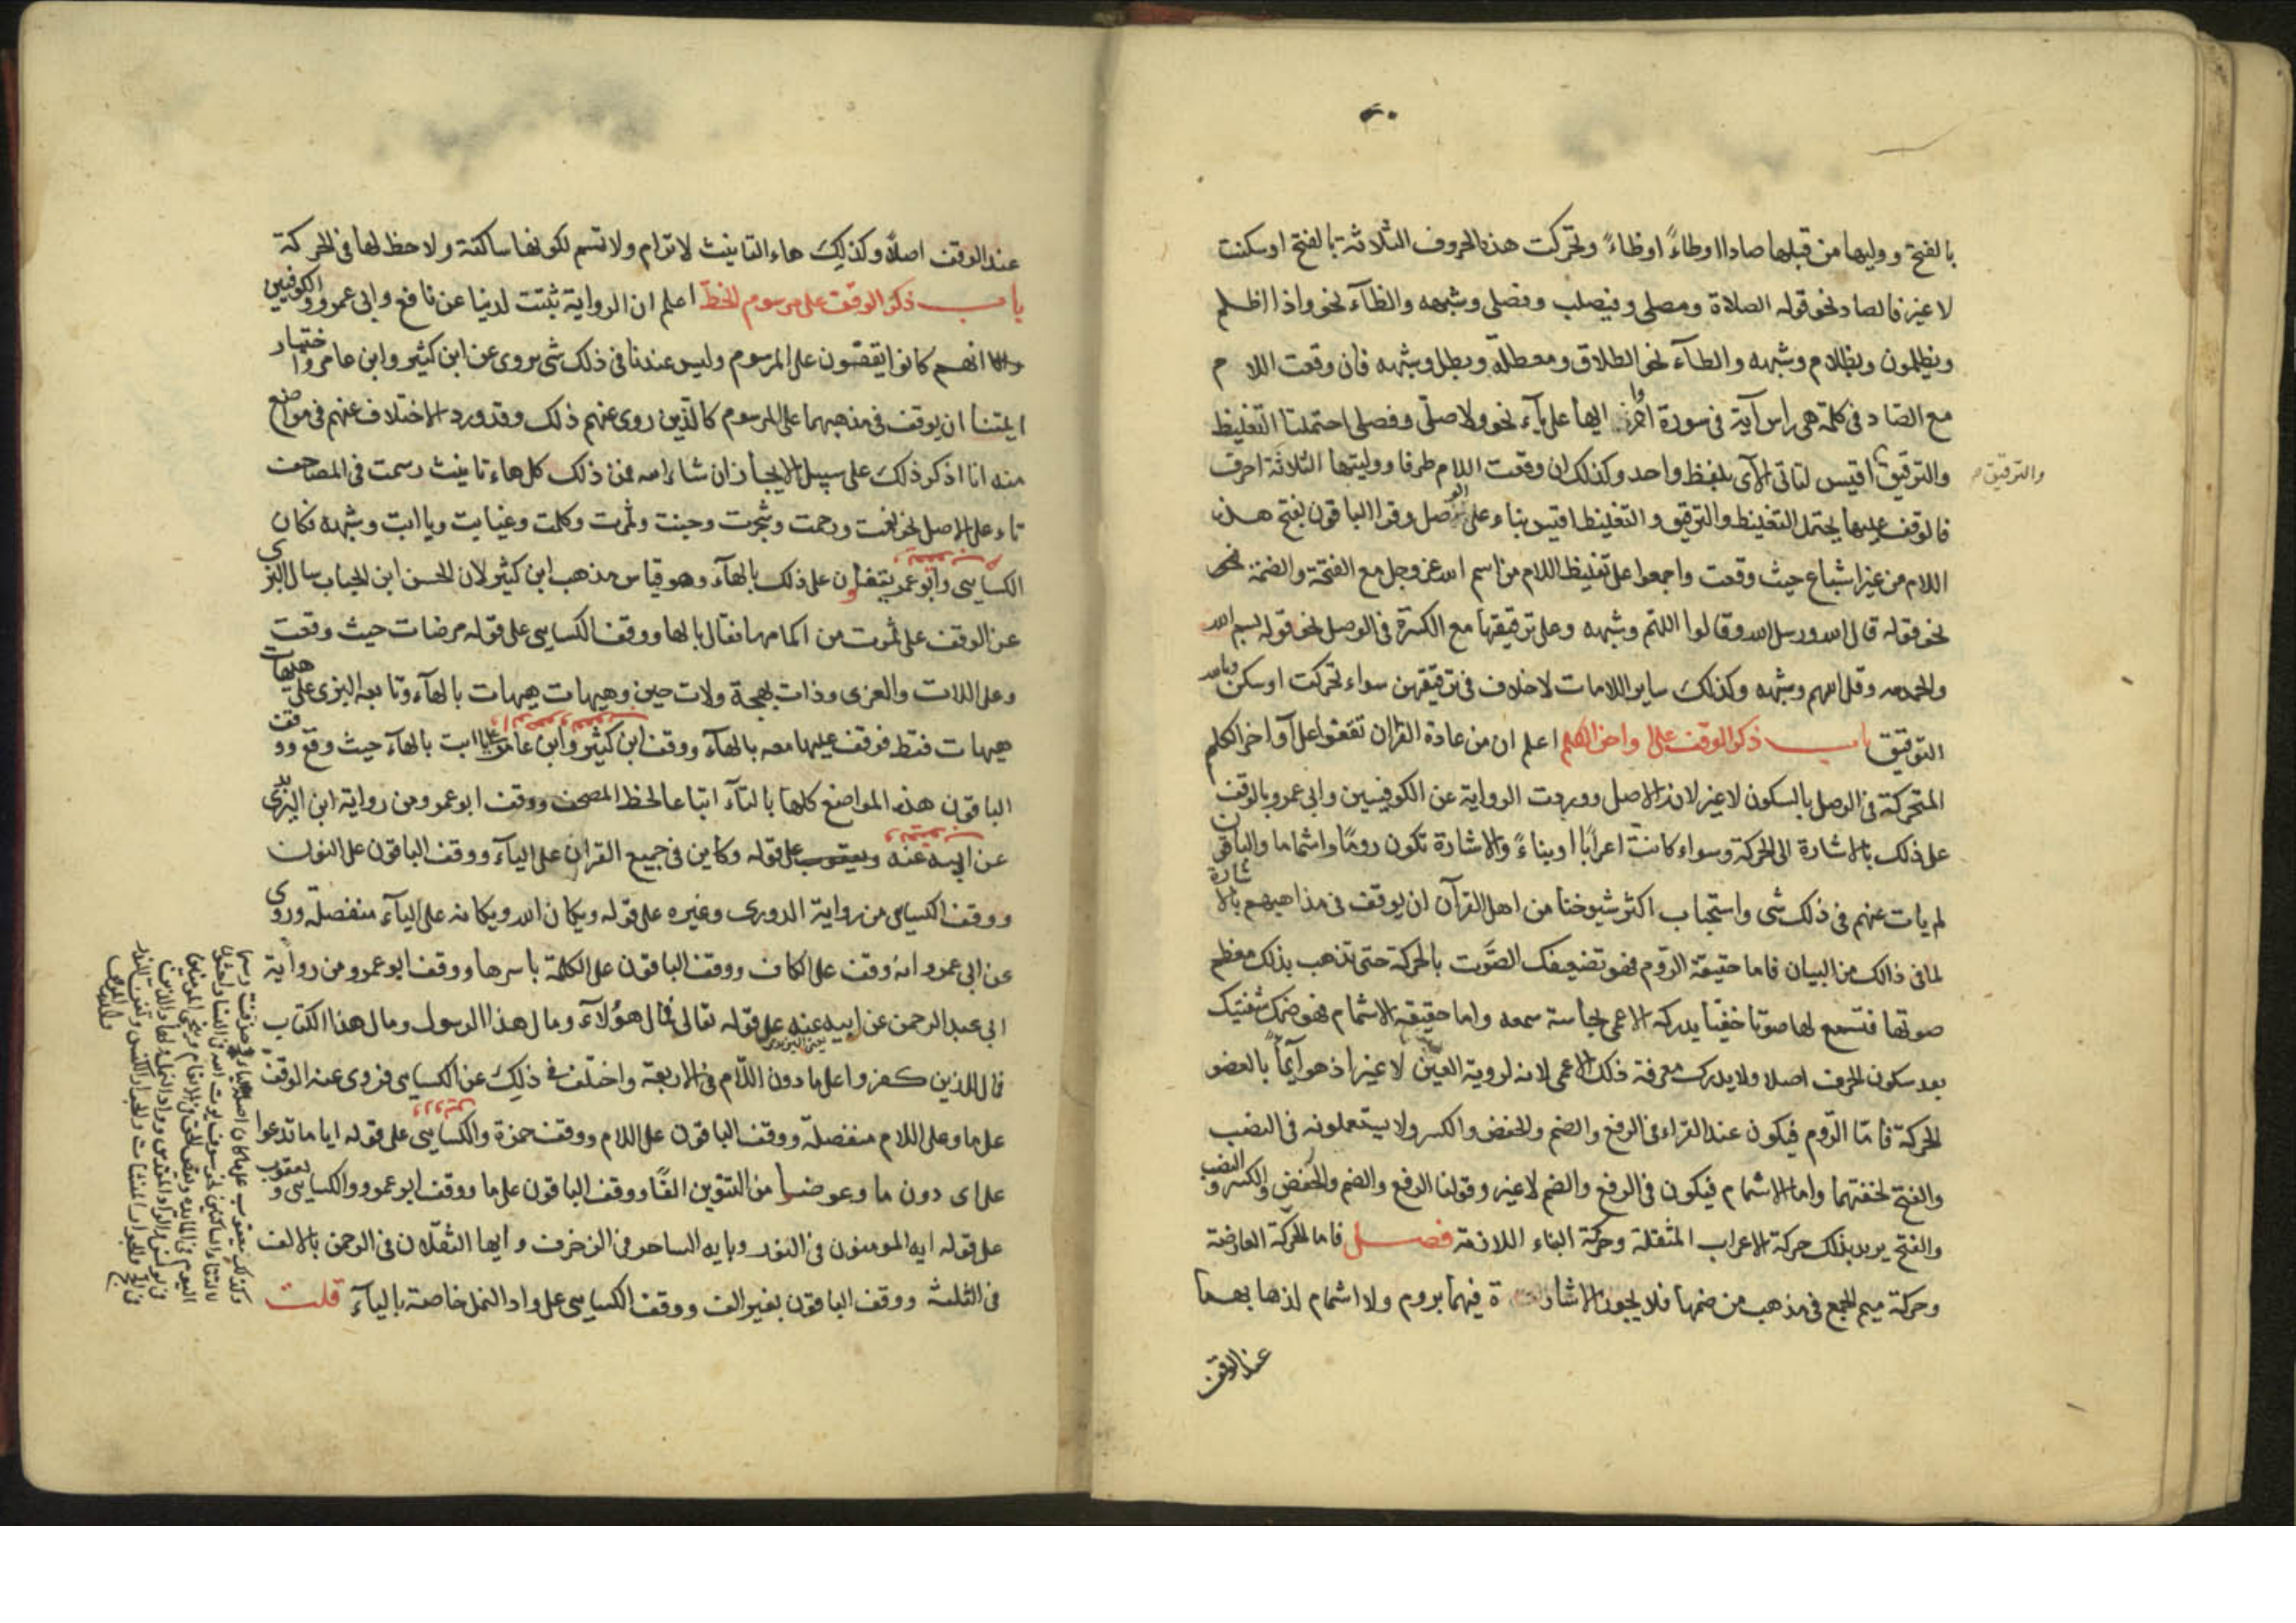 بالفتح ووليها من قبلها صادا او طاءً او ظاءً وتحركت هذه الحروف الثلاثة بالفتح او سكنت
لا غير فالصاد نحو قوله الصلاة ومصلى وفيصلب وفصلى وشبهه والظآء نحو واذا اظلم
ويظلمون وبظلام وشبهه والطآء نحو الطلاق ومعطلة وبطل وشبهه فان وقعت اللام
مع الصاد فى كلمة هى راس آية فى سورة اواخر ايها على يآء نحو ولا صلى وفصلى احتملتا التغليظ
والترقيق اقيس لتاتى الآى بلفظ واحد وكذلك ان وقعت اللام طرفا ووليتها الثلاثة احرف
والترقيق
فالوقف عليها يحتمل التغليظ والترقيق والتغليظ اقيس بناء على الوصل وقرا الباقون بفتح هذه
اللام من غير اشباع حيث وقعت واجمعوا على تغليظ اللام من اسم الله عز وجل مع الفتحة والضمة نحو
نحو قوله قال الله ورسل الله وقالوا اللهم وشبهه وعلى ترقيقها مع الكسرة فى الوصل نحو قوله بسم الله
والحمد لله وقل اللهم وشبهه وكذلك ساير اللامات لا خلاف فى ترقيقهن سواء تحركت او سكن وبالله
التوفيق باب ذكر الوقف على اواخر الكلم اعلم ان من عادة القرآن تقفوا على آواخر الكلم
المتحركة فى الوصل بالسكون لا غير لانه الاصل ووردت الرواية عن الكوفيين وابى عمرو بالوقف
على ذلك بالاشارة الى الحركة وسواء كانت اعرابًا او بناءً والاشارة تكون رومًا واشماما والباقون
لم يات عنهم فى ذلك شى واستحباب اكثر شيوخنا من اهل القرآن ان يوقف فى مذاهبهم بالاشارة
لما فى ذالك من البيان فاما حقيقة الروم فهو تضعيفك الصَّوت بالحركة حتى تذهب بذلك معظم
صوتها فتسمع لها صوتا خفيا يدركه الاعمى بحاسة سمعه واما حقيقة الاشمام فهو ضمك شفتيك
بعد سكون الحرف اصلا ولا يدرك معرفة ذلك الاعمى لانه لروية العين لا غير اذ هو آيمآ بالعضو
الحركة فامّا الرَّوم فيكون عند القراء فى الرفع والضم والخفض والكسر ولا يستعملونه فى النصب
والفتح لخفتهما واما الاشمام فيكون فى الرفع والضم لا غير وقولنا الرفع والضم والخفض والكسر والنصب
والفتح يريد بذلك حركة الاعراب المنتقلة وحركة البناء اللازمة فصل فاما الحركة العارضة
وحركة ميم الجمع فى مذهب من ضمها فلا يجوز الاشارة فيهما بروم ولا اشمام لذهابهما
عند الوقف
عند الوقف اصلًا وكذلك هاء التانيث لا ترام ولا تشم لكونها ساكنة ولا حظ لها فى الحركة
باب ذكر الوقف على مرسوم الخط اعلم ان الرواية ثبتت لدينا عن نافع وابى عمرو والكوفيين
انهم كانوا يقفون على المرسوم وليس عندنا فى ذلك شى يروى عن ابن كثير وابن عامر واختيار
ايمتنا ان يوقف فى مذهبهما على المرسوم كالذين روى عنهم ذلك وقد ورد الاختلاف عنهم فى مواضع
منه انا اذكر ذلك على سبيل الايجاز ان شاء الله فمن ذلك كل هاء تانيث رسمت فى المصاحف
تاء على الاصل نحو نعمت ورحمت وشجرت وجنت وثمرت وكلمت وغيابت ويا ابت وشبهه فكان
الكسايى وابو عمرو يقفان على ذلك بالهآء وهو قياس مذهب ابن كثير لان الحسن ابن الحباب سال البزى
عن الوقف على ثمرت من اكمامها فقال بالها ووقف الكسايى على قوله مرضات حيث وقعت
وعلى اللات والعزى وذات بهجة ولات حين وهيهات هيهات بالهآء وتابعه البزى على هيهات
هيهات فقط فوقف عليها معه بالهآء ووقف ابن كثير وابن عامر على يا ابت بالهآء حيث وقع ووقف
الباقون هذه المواضع كلها بالتآء اتباعا لخط المصحف ووقف ابو عمرو من رواية ابن اليزيدى
عن ابيه عنه على قوله وكاين فى جميع القرآن على اليآء ووقف الباقون على النون
ووقف الكسايى من رواية الدورى وغيره على قوله ويكان الله ويكانه على اليآء منفصلة وروى
عن ابى عمرو انه وقف على الكاف ووقف الباقون على الكلمة باسرها ووقف ابو عمرو من رواية
ابى عبد الرحمن عن ابيه عنه على قوله تعالى فمال هؤلآء ومال هذا الرسول ومال هذا الكتاب
فمال الذين كفروا على ما دون اللام فى الاربعة واختلف فى ذلك عن الكسايى فروى عنه الوقف
على ما وعلى اللام منفصلة ووقف الباقون على اللام ووقف حمزة والكسايى على قوله ايا ما تدعوا
على اى دون ما وعوضا من التنوين الفًا ووقف الباقون على ما ووقف ابو عمرو والكسايى ويعقوب
على قوله ايه المومنون فى النور ويايه الساحر فى الزخرف وايها الثقلان فى الرحمن بالالف
فى الثلثة ووقف الباقون بغير الف ووقف الكسايى على واد النمل خاصة باليآء قلت